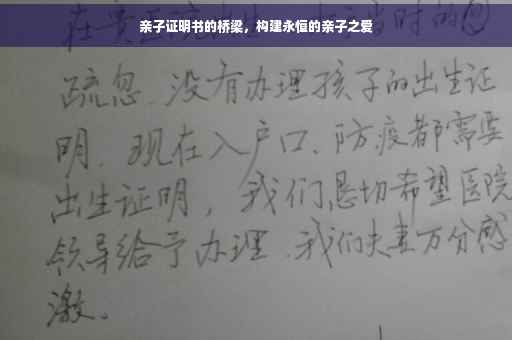 亲子证明书的桥梁，构建永恒的亲子之爱
在贵医院出生 当时的
疏忽、没有办理孩子的出生证
明. 现在入户口、防疫都需要
出生证明，我们恳切希望医院
领导给予办理、我们夫妻万分感
激。